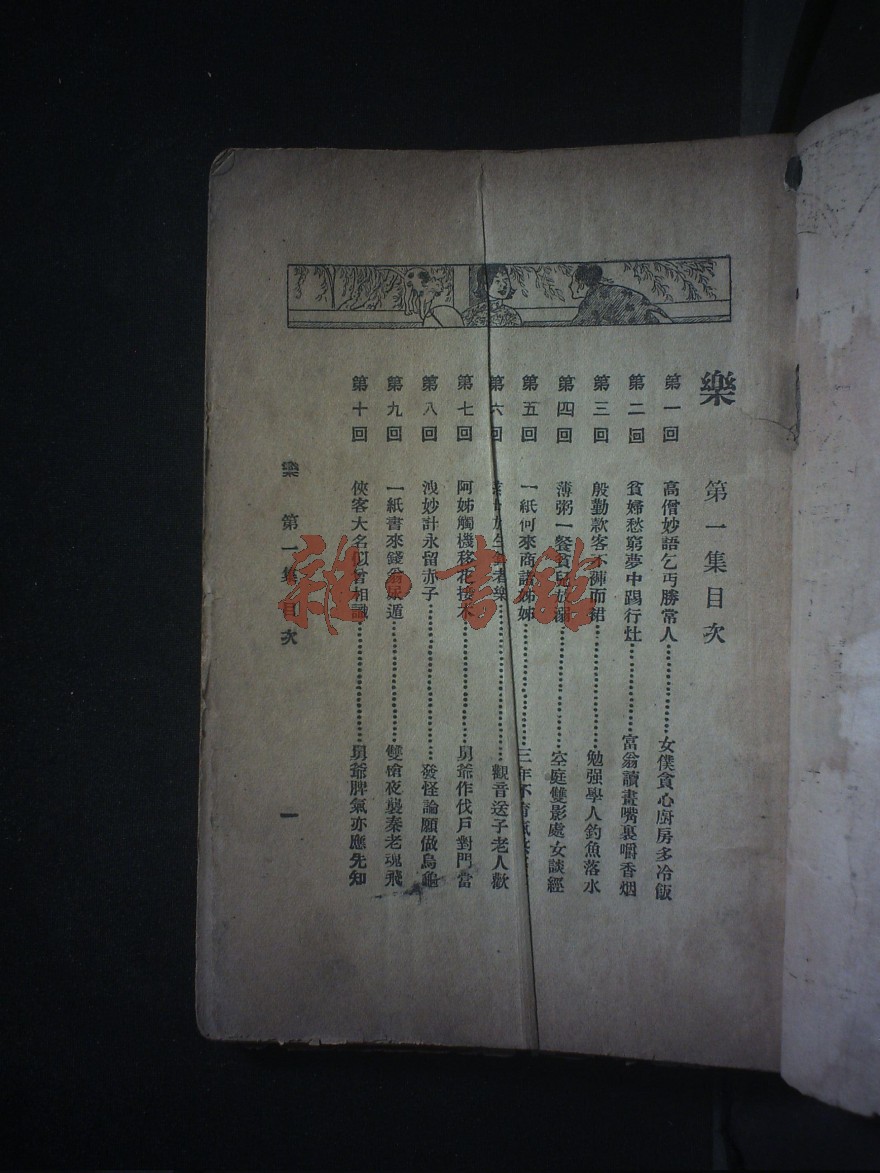 樂 第一集目次
第一回 高僧妙語乞丐勝常人……女僕貪心廚房多冷飯
第二回 貧婦愁窮夢中踢行灶……富翁讀畫嘴裏嚼香烟
第三回 殷勤款客不褲而裙……勉强學人釣魚落水
第四回 薄粥一餐貧兒……空庭雙影處女談經
第五回 一紙何來商諸姊姊……三年不育
第六回 者樂……觀音送子老人歡
第七回 阿姊觸機移花接木……舅爺作伐戶對門當
第八回 洩妙計永留赤子……發怪論願做烏龜
第九回 一紙書來錢翁尿遁……雙槍夜襲秦老魂飛
第十回 俠客大名似曾相識……舅爺脾氣亦應先知
樂 第一集目次 一
雜·書館